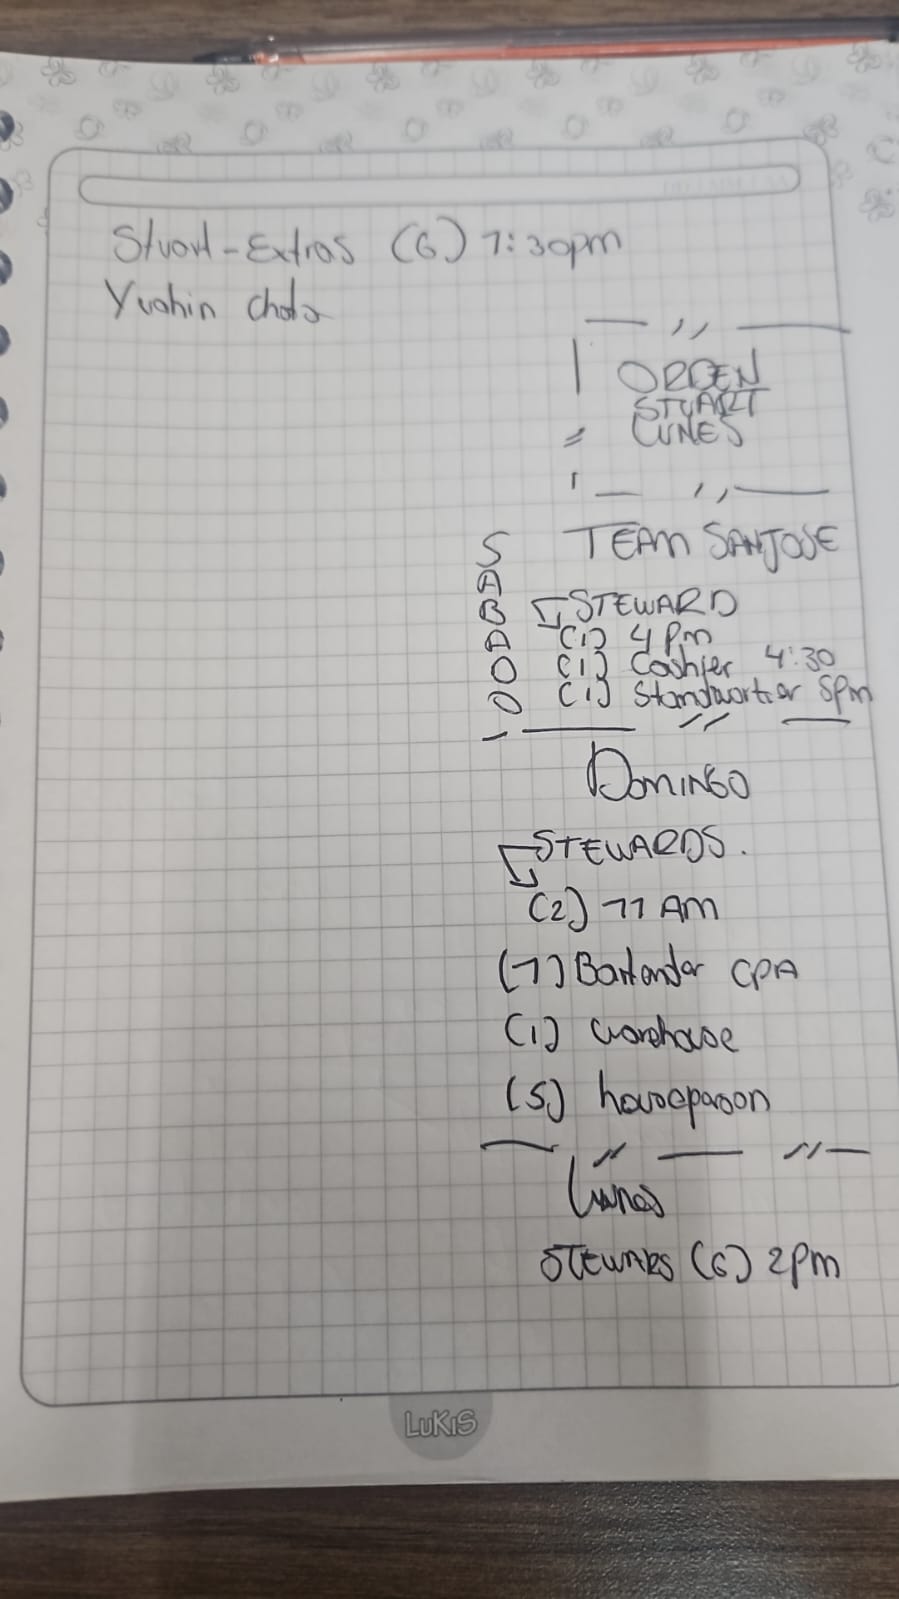 Stuart-Extras (6) 7:30pm
Yuahin Chota
ORDEN
STUART
LUNES
TEAM SANJOSE
SABADO
STEWARD
(1) 4 Pm
(1) Cashier 4:30
(1) Standwortier 5pm
DOMINGO
STEWARDS.
(2) 11 AM
(1) Bartender CPA
(1) warehouse
(5) houseperson
Lunes
STEWARS (6) 2pm
LUKIS